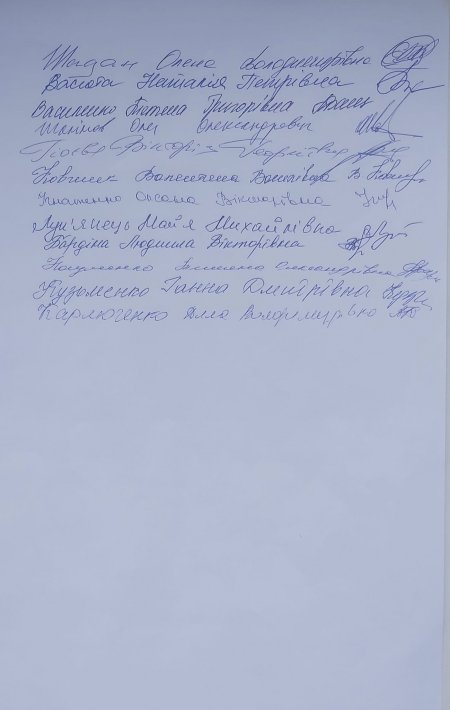 Шадан Олена Володимирівна
Васюта Наталія Петрівна
Василенко Тетяна Григорівна
Шапілов Олег Олександрович
Вікторія Георгіївна
Ковчик Валентина Василівна
Ігнатенко Оксана Вікторівна
Лук'янець Майя Михайлівна
Бардіна Людмила Вікторівна
Олександрівна
Кузьменко Ганна Дмитрівна
Карлюченко Алла Володимирівна